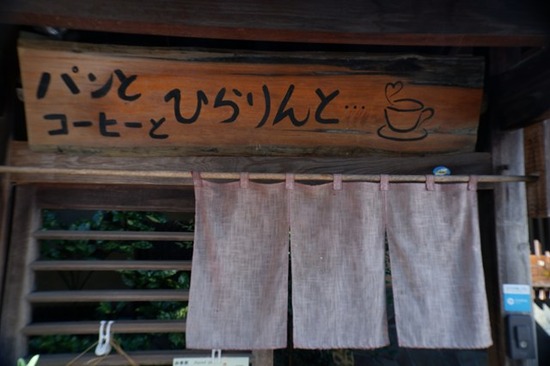 パンと
コーヒーと
ひらりんと…